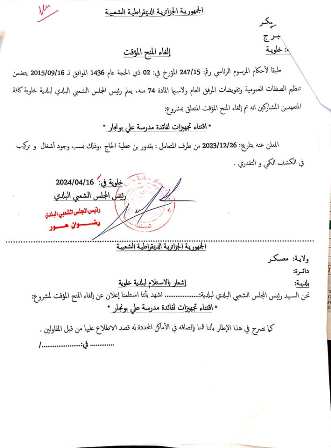 الجمهورية الجزائرية الديمقراطية الشعبية
إلغاء المنح المؤقت
طبقا لأحكام المرسوم الرئاسي رقم: 247/15 المؤرخ في: 02 ذي الحجة عام 1436 الموافق لـ 2015/09/16 يتضمن
تنظيم الصفقات العمومية وتفويضات المرفق العام ولاسيما المادة 74 منه، يعلم رئيس المجلس الشعبي البلدي لبلدية خلوية كافة
المتعهدين المشاركين انه تم إلغاء المنح المؤقت المتعلق بمشروع:
" اقتناء تجهيزات لفائدة مدرسة علي بونجار "
المعلن عنه بتاريخ: 2023/12/26 من طرف المتعامل: بقدور بن عطية الحاج ،وذلك بسبب وجود أشغال و تركيب
في الكشف الكمي و التقديري .
خلوية في: 2024/04/16
رئيس المجلس الشعبي البلدي
رئيس المجلس الشعبي البلدي
الجمهورية الجزائرية الديمقراطية الشعبية
ولاية: معسكر
دائرة:
بلدية:
إشعار بالاستلام لبلدية خلوية
نحن السيد رئيس المجلس الشعبي البلدي لبلدية:............... اشهد بأننا استلمنا إعلان عن إلغاء المنح المؤقت لمشروع:
" اقتناء تجهيزات لفائدة مدرسة علي بونجار "
كما نصرح في هذا الإطار بأننا قمنا بإلصاقه في الأماكن المحددة له قصد الاطلاع عليها من قبل المقاولين .
............ في:............/